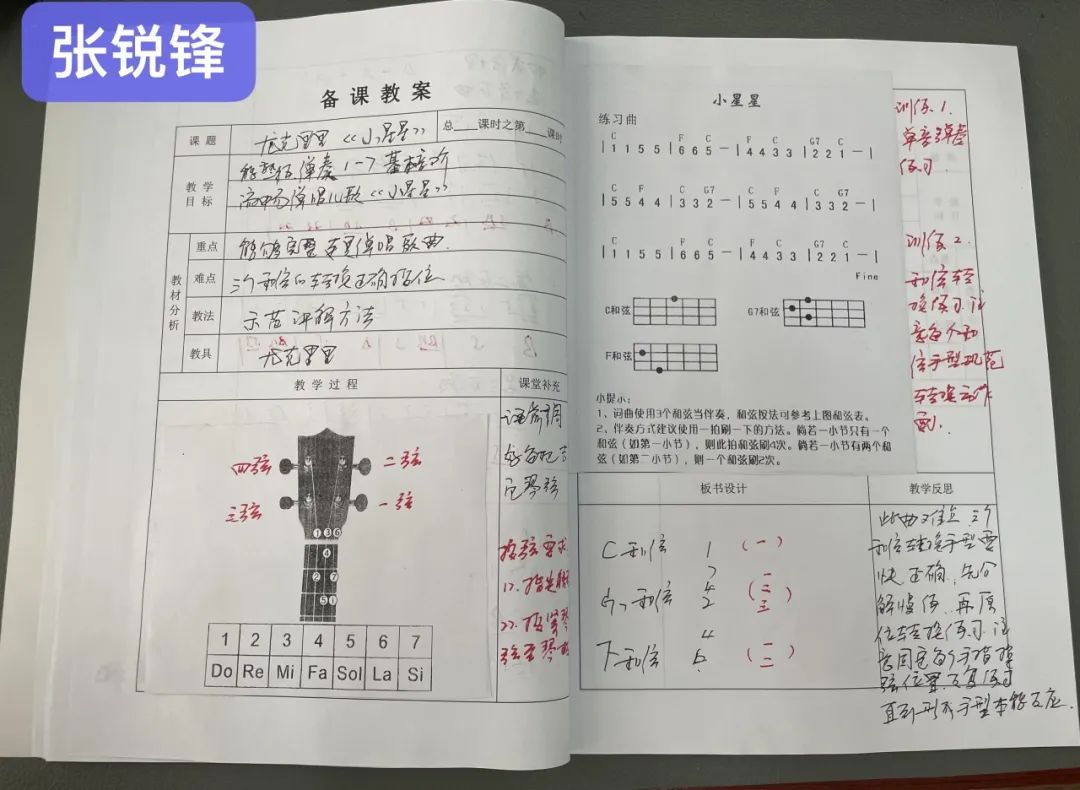 张锐锋
备课教案
课题
尤克里里《小星星》
总 课时之第 课时
教学
目标
能熟练弹奏1-7基本音阶
流畅弹唱儿歌《小星星》
教材分析
重点
能够完整连贯弹唱歌曲.
难点
三个和弦的转换正确指位
教法
示范讲解方法
教具
尤克里里
教学过程
课堂补充
课前调
好每把吉
它琴弦
四弦
二弦
三弦
一弦
按弦要求
1).指尖
2).按紧琴
弦至琴
①③⑥
④
② ⑦
⑤ ①
1 2 3 4 5 6 7
Do Re Mi Fa Sol La Si
小星星
练习曲
C F C F C G7 C
| 1 1 5 5 | 6 6 5 — | 4 4 3 3 | 2 2 1 — |
C F C G7 C F C G7
| 5 5 4 4 | 3 3 2 — | 5 5 4 4 | 3 3 2 — |
C F C F C G7 C
| 1 1 5 5 | 6 6 5 — | 4 4 3 3 | 2 2 1 — |
Fine
C和弦
G7和弦
F和弦
小提示：
1、词曲使用3个和弦当伴奏，和弦按法可参考上图和弦表。
2、伴奏方式建议使用一拍刷一下的方法。倘若一小节只有一个
和弦（如第一小节），则此拍和弦刷4次。倘若一小节有两个和
弦（如第二小节），则一个和弦刷2次。
训练1.
单音弹奏
练习
训练2.
和弦转
换练习注
意每个和
弦手型规范
转换动作
板书设计
C和弦 1 （一）
G7和弦 2 （二三）
F和弦 （一二）
教学反思
此曲难点三个
和弦转换手型要
快正确,先分
解慢练,再原
位转换练习注
意固定每个手指按
弦位置反复练习
直到形成手型本能反应.